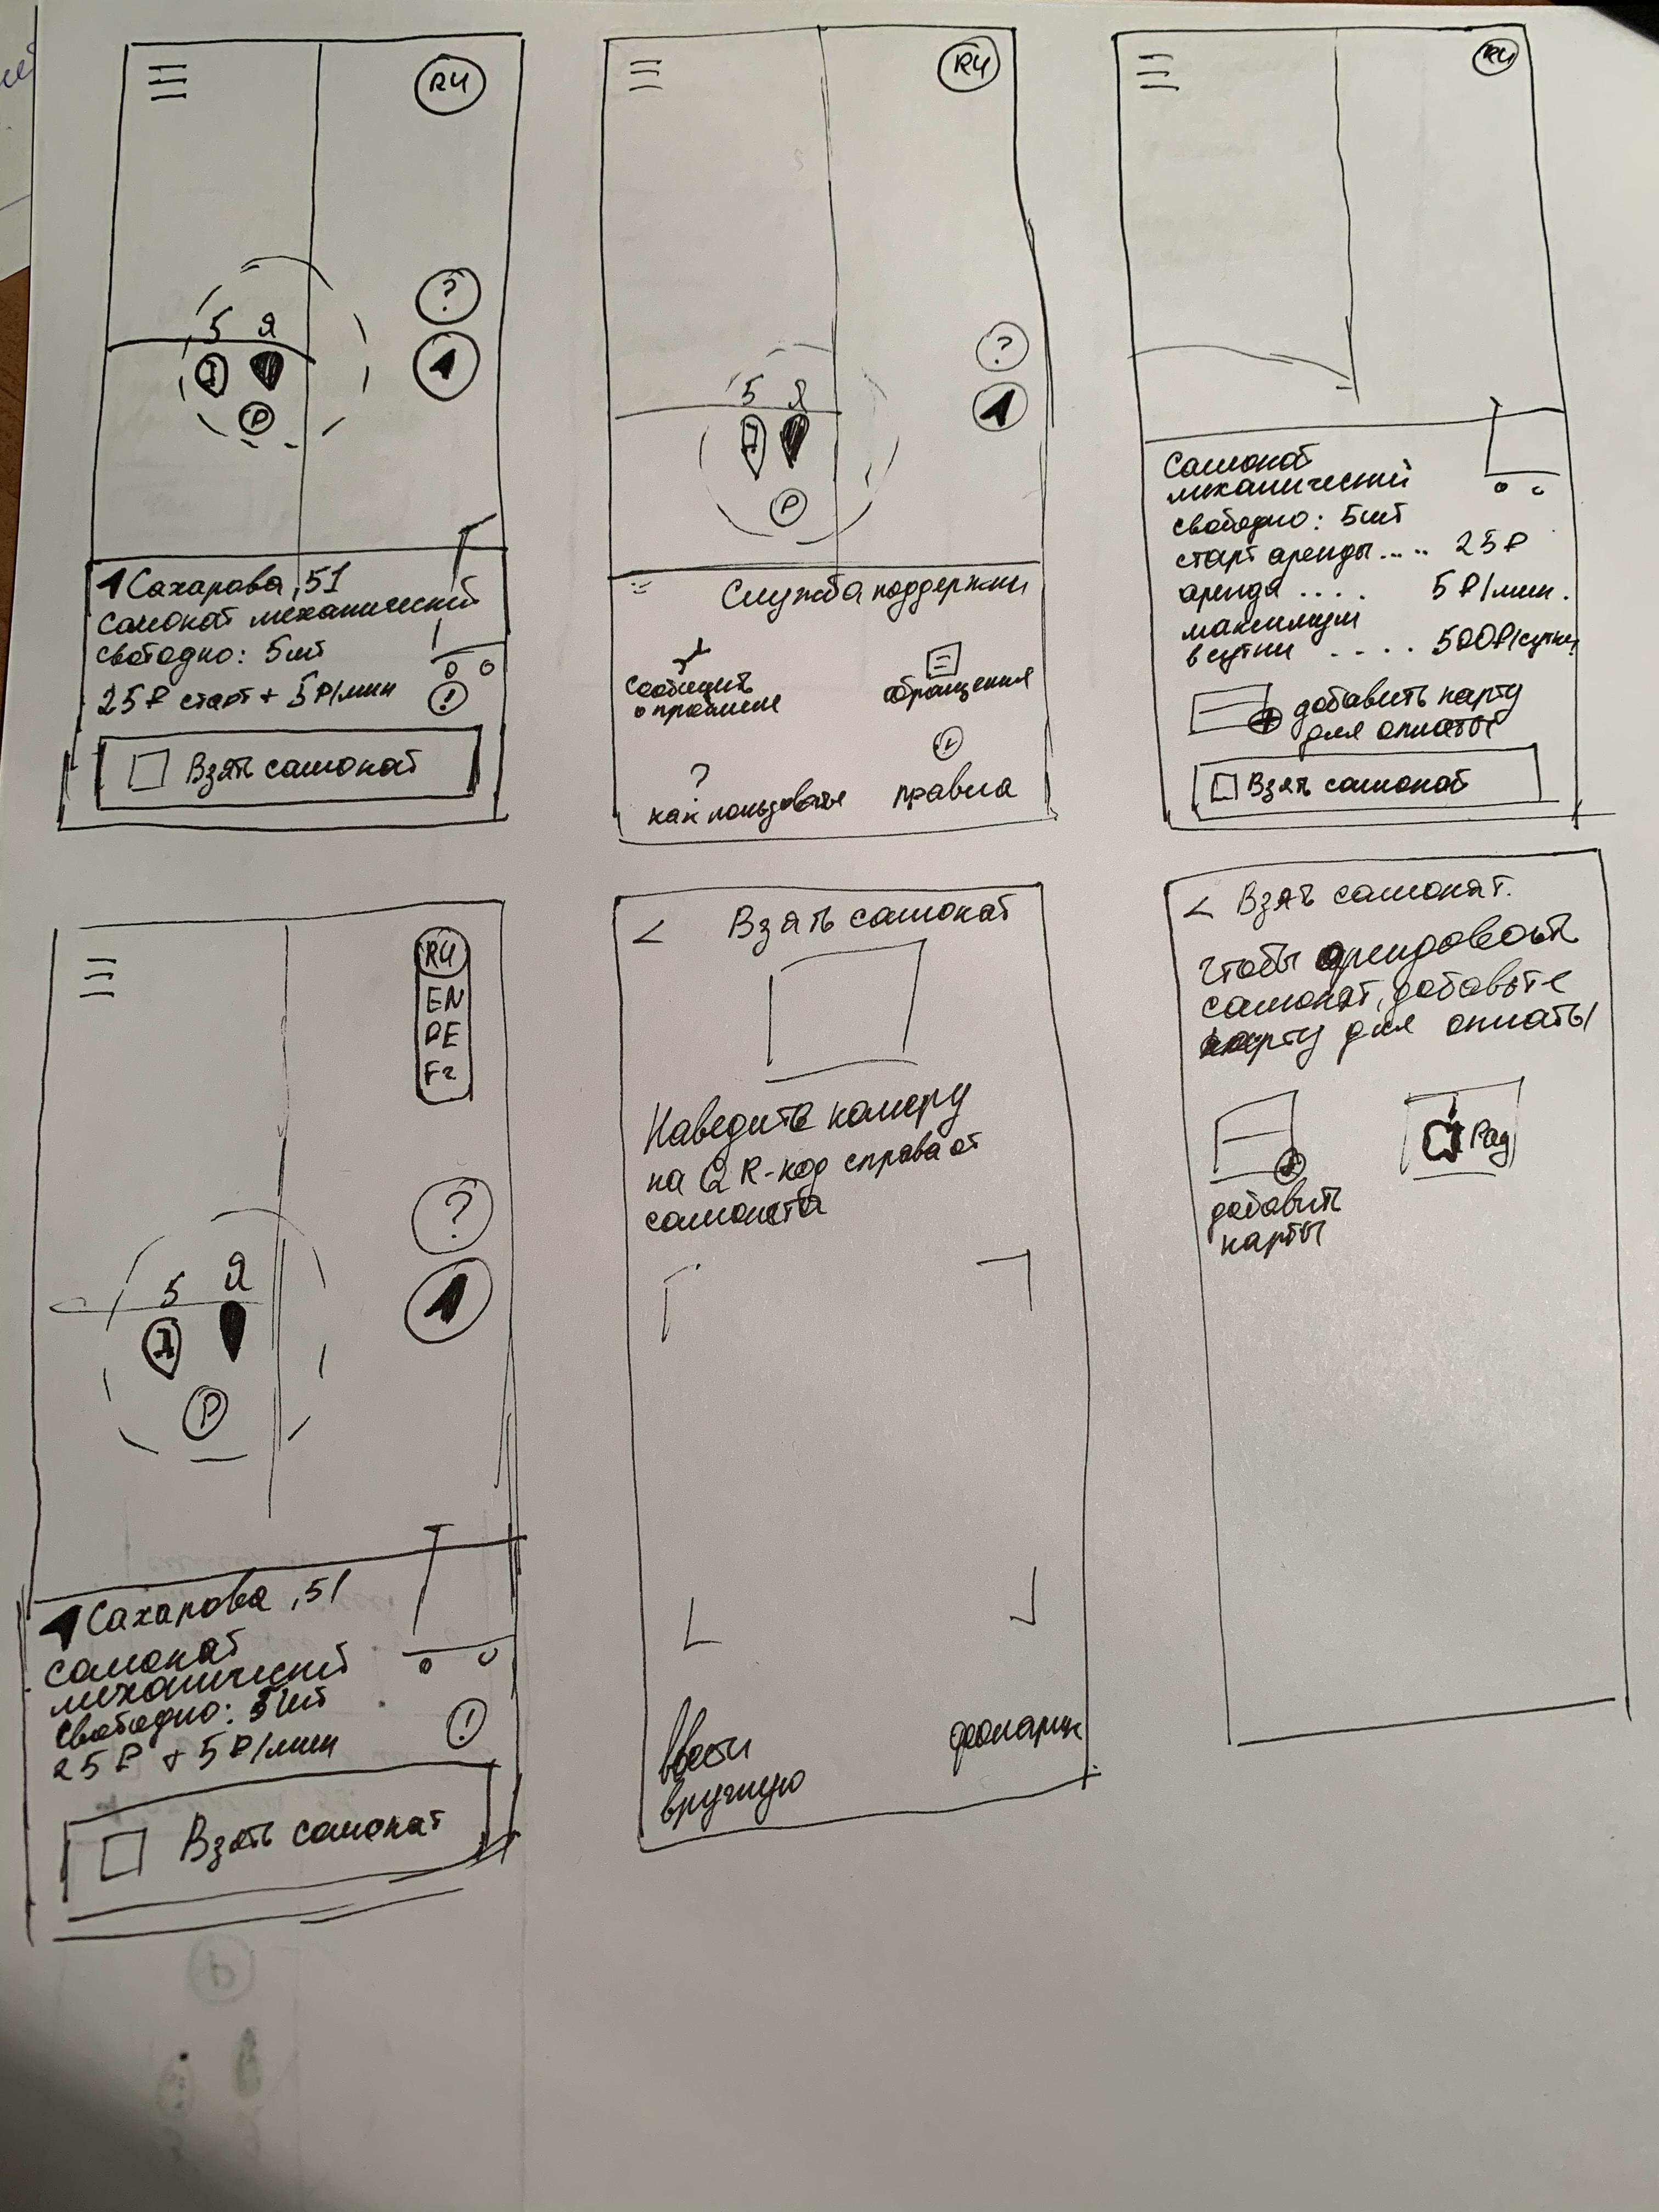 RU
?
5 Я
P
Сахарова, 51
самокат механический
свободно: 5шт
25₽ старт + 5₽/мин
!
Взять самокат
RU
?
5 Я
P
Служба поддержки
Сообщить
о проблеме
обращения
?
как пользоваться
правила
RU
Самокат
механический
свободно: 5шт
старт аренды.... 25₽
аренда .... 5₽/мин.
максимум
в сутки .... 500₽/сутки
добавить карту
для оплаты
Взять самокат
RU
EN
DE
Fr
?
5 Я
P
Сахарова, 51
самокат
механический
свободно: 5шт
25₽ + 5₽/мин
!
Взять самокат
< Взять самокат
Наведите камеру
на QR-код справа от
самоката
Ввести
вручную
фонарик
< Взять самокат.
Чтобы арендовать
самокат, добавьте
карту для оплаты
добавить
карты
Pay